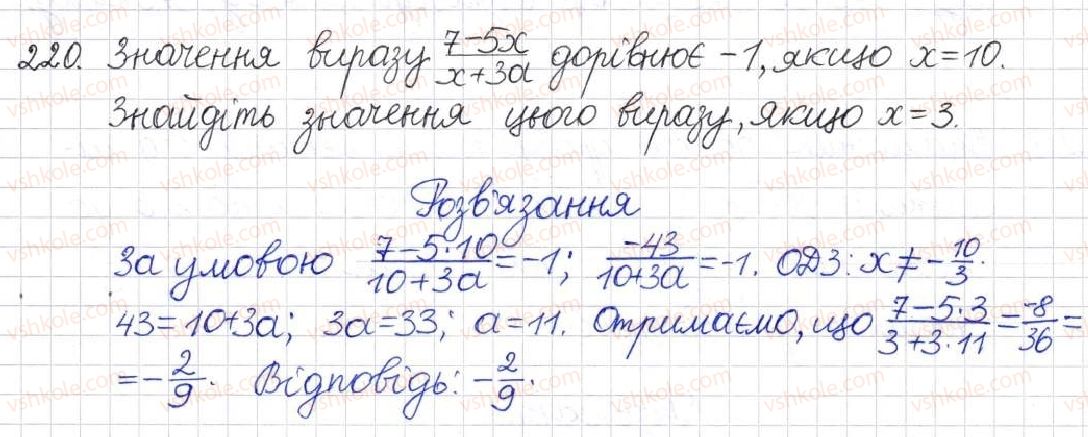 220. Значення виразу (7-5x)/(x+3a) дорівнює -1, якщо x=10.
Знайдіть значення цього виразу, якщо x=3.
Розв'язання
За умовою (7-5·10)/(10+3a)=-1; -43/(10+3a)=-1. ОДЗ: x≠-10/3.
43=10+3a; 3a=33; a=11. Отримаємо, що (7-5·3)/(3+3·11)=-8/36=
=-2/9. Відповідь: -2/9.